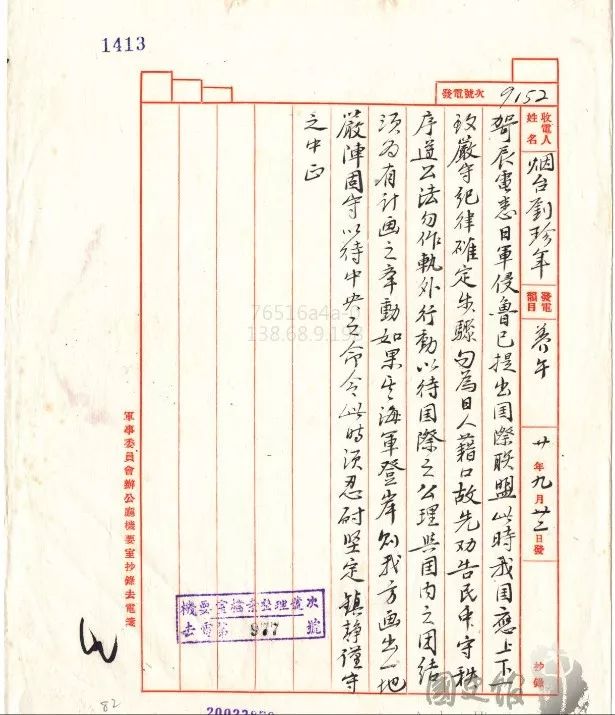 1413
發電號次 9152
收電人姓名 烟台劉珍年 發電韻目 養午 廿年九月廿二日發 抄錄
哿辰電悉日軍侵魯已提出国際联盟此時我国應上下一
致嚴守纪律確定步驟勿為日人藉口故先劝告民守秩
序遵公法勿作軌外行動以待国際之公理與国内之团结
须为有计画之動如果其海軍登岸則我方画出一地
嚴陣固守以待中央之命令此時须忍耐坚定鎮静谨守
之中正
軍事委員會辦公廳機要室抄錄去電箋
機要室檔案整理號次
去電第 977 號
82
76516a4a-
138.68.9.19